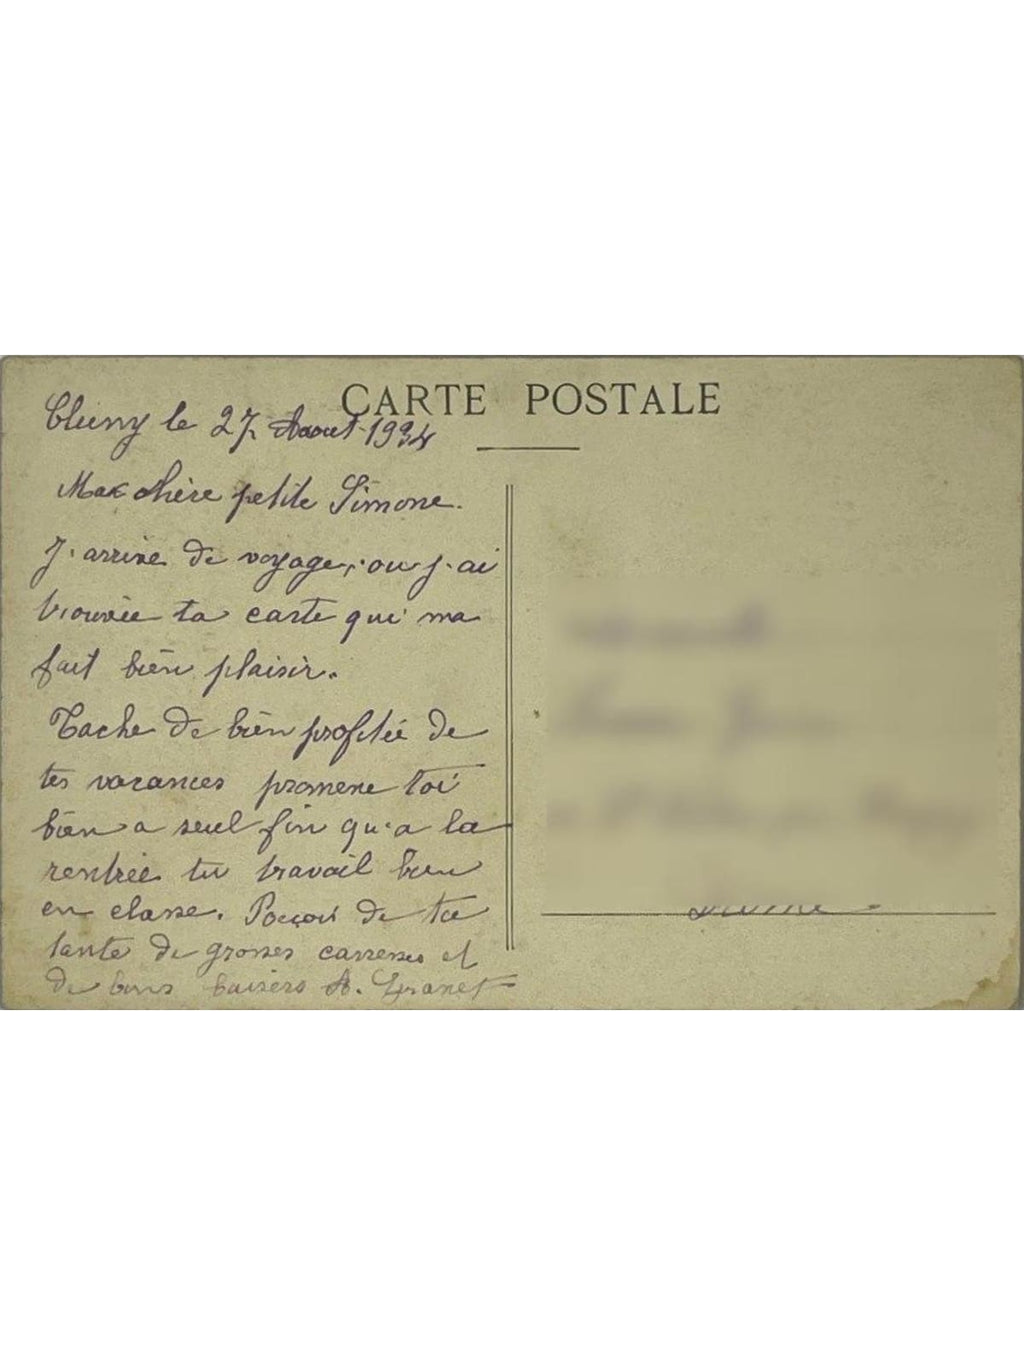 CARTE POSTALE
Cluny le 27 Aout 1934
Ma chère petite Simone.
J'arrive de voyage, ou j'ai
trouvée ta carte qui ma
fait bien plaisir.
Tache de bien profitée de
tes vacances promene toi
bien a seul fin qu'a la
rentrée tu travail bien
en classe. Reçoi de ta
tante de grosses carresses et
de bons baisers A. Granet